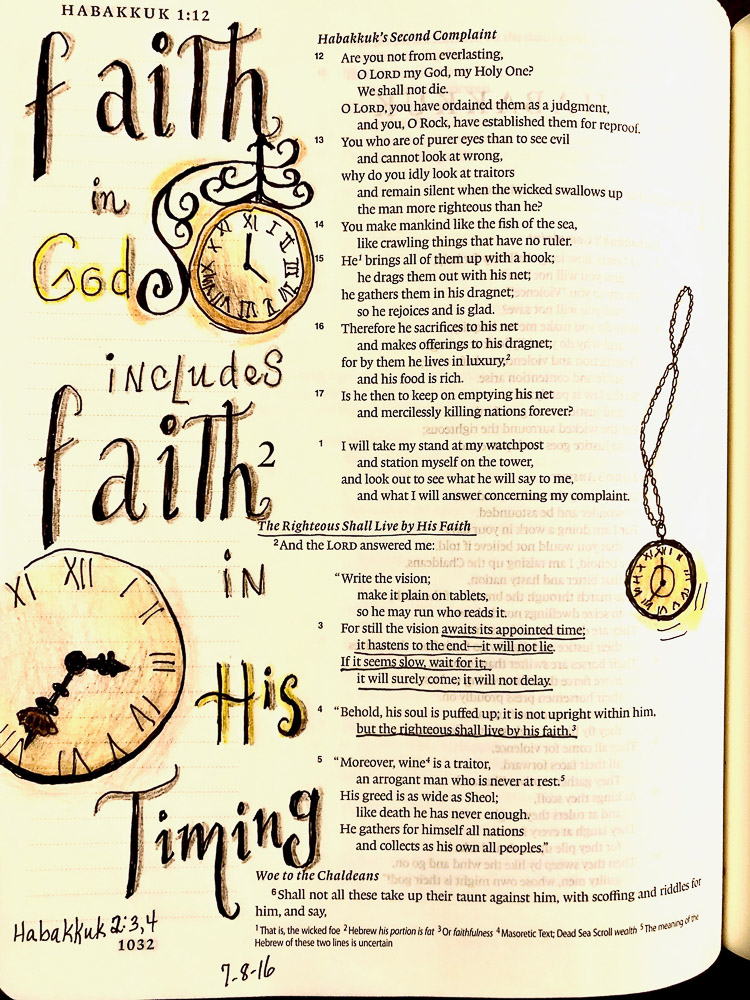 HABAKKUK 1:12
faith
in
God
includes
faith²
in
His
Timing
Habakkuk 2:3,4
1032
7-8-16
XI XII I II III IV V VI VII VIII IX X
XI XII I II III IV V VI VII
Habakkuk's Second Complaint
12 Are you not from everlasting,
O LORD my God, my Holy One?
We shall not die.
O LORD, you have ordained them as a judgment,
and you, O Rock, have established them for reproof.
13 You who are of purer eyes than to see evil
and cannot look at wrong,
why do you idly look at traitors
and remain silent when the wicked swallows up
the man more righteous than he?
14 You make mankind like the fish of the sea,
like crawling things that have no ruler.
15 He¹ brings all of them up with a hook;
he drags them out with his net;
he gathers them in his dragnet;
so he rejoices and is glad.
16 Therefore he sacrifices to his net
and makes offerings to his dragnet;
for by them he lives in luxury,²
and his food is rich.
17 Is he then to keep on emptying his net
and mercilessly killing nations forever?
1 I will take my stand at my watchpost
and station myself on the tower,
and look out to see what he will say to me,
and what I will answer concerning my complaint.
The Righteous Shall Live by His Faith
²And the LORD answered me:
"Write the vision;
make it plain on tablets,
so he may run who reads it.
3 For still the vision awaits its appointed time;
it hastens to the end—it will not lie.
If it seems slow, wait for it;
it will surely come; it will not delay.
4 "Behold, his soul is puffed up; it is not upright within him,
but the righteous shall live by his faith.³
5 "Moreover, wine⁴ is a traitor,
an arrogant man who is never at rest.⁵
His greed is as wide as Sheol;
like death he has never enough.
He gathers for himself all nations
and collects as his own all peoples."
Woe to the Chaldeans
⁶Shall not all these take up their taunt against him, with scoffing and riddles for
him, and say,
¹ That is, the wicked foe ² Hebrew his portion is fat ³ Or faithfulness ⁴ Masoretic Text; Dead Sea Scroll wealth ⁵ The meaning of the
Hebrew of these two lines is uncertain